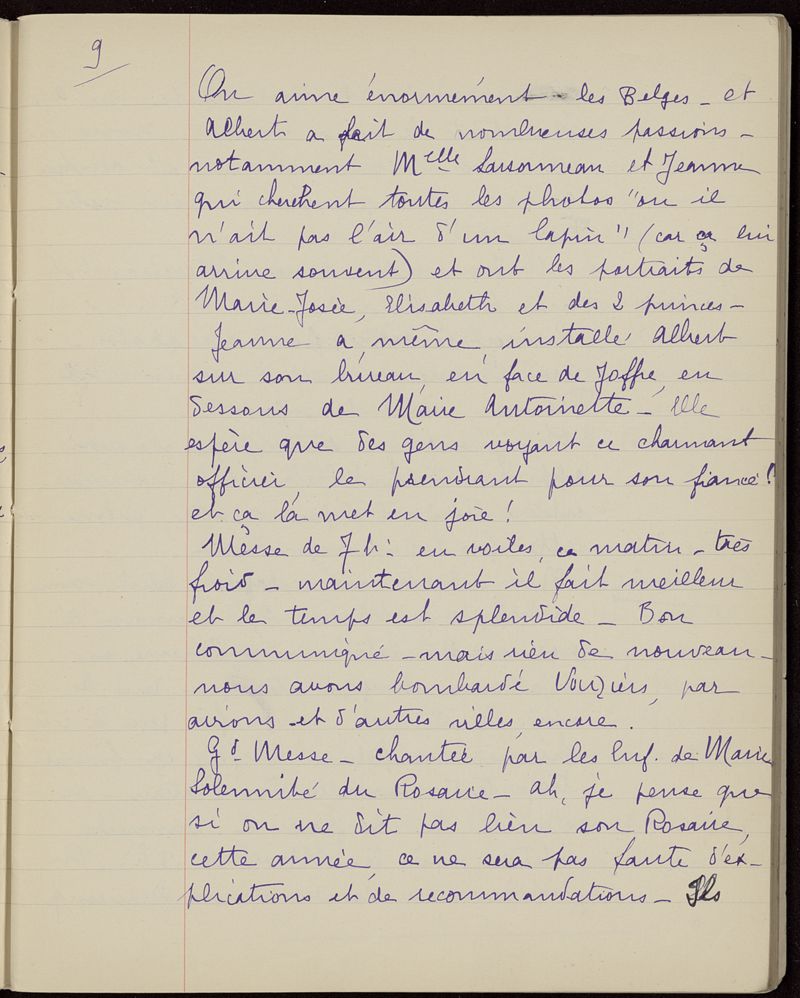 9
On aime énormément les Belges - et
Albert a fait de nombreuses passions -
notamment Melle Sarsonneau et Jeanne
qui cherchent toutes les photos "ou il
n'ait pas l'air d'un lapin" (car ça lui
arrive souvent) et ont les portraits de
Marie-Josée, Elisabeth et des 2 princes -
Jeanne a même installé Albert
sur son bureau, en face de Joffre, en
dessous de Marie Antoinette - Elle
espère que des gens voyant ce charmant
officier, le prendrant pour son fiancé !
et ça la met en joie !
Messe de 7h: en voiles, ce matin - très
froid - maintenant il fait meilleur
et le temps est splendide - Bon
communiqué - mais rien de nouveau -
nous avons bombardé Vouziers, par
avions et d'autres villes, encore.
Gd Messe - chantée par les Enf. de Marie
Solennité du Rosaire - ah, je pense que
si on ne dit pas bien son Rosaire,
cette année, ce ne sera pas faute d'ex-
plications et de recommandations - Ils